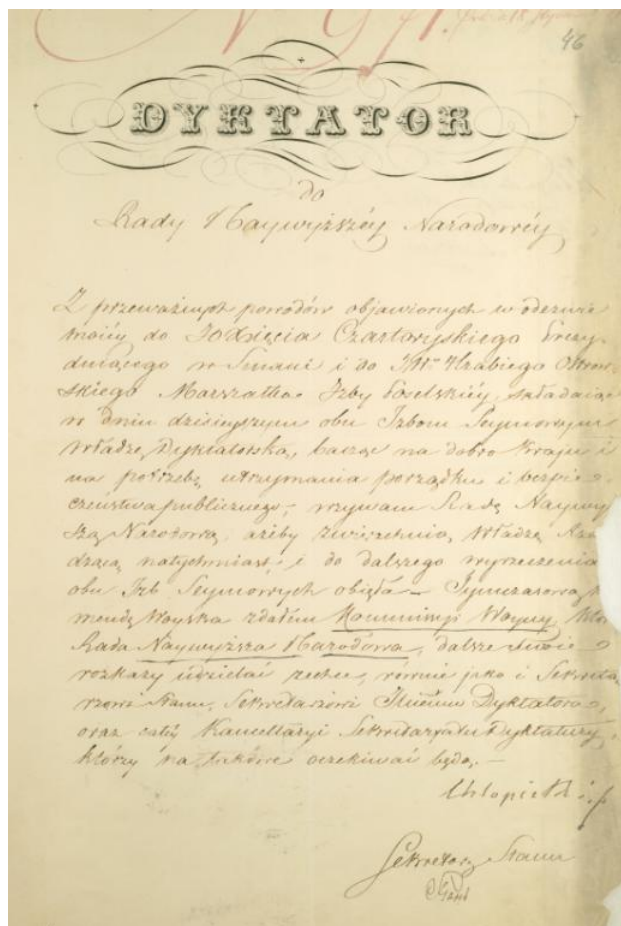 46
DYKTATOR
do
Rady Naywyższéy Narodowéy
Z przeważnych powodów objawionych w odezwie
moiéy do JO Xięcia Czartoryskiego Prezy
duiącego w Senacie i do JW Hrabiego Ostrow
skiego Marszałka Izby Poselskiéy, składaiąc
w dniu dzisieyszym obu Izbom Seymowym
władzę Dyktatorską, bacząc na dobro Kraju i
na potrzebę utrzymania porządku i bezpie-
czeństwa publicznego, wzywam Radę Naywy
ższą Narodową, ażeby zwierzchnią Władzę Rzą
dzącą natychmiast i do dalszego wyrzeczenia
obu Izb Seymowych obięła — Tymczasową
mendę Woyska zdałem Kommissyi Woyny,
Rada Naywyższa Narodowa, dalsze swoie
rozkazy udzielać zechce, równie jako i Sekreta
rzowi Stanu, Sekretarzowi Dyktatora,
oraz całéy Kancellaryi Sekretaryatu Dyktatury,
którzy na takowe oczekiwać będą. —
Chłopicki
Sekretarz Stanu